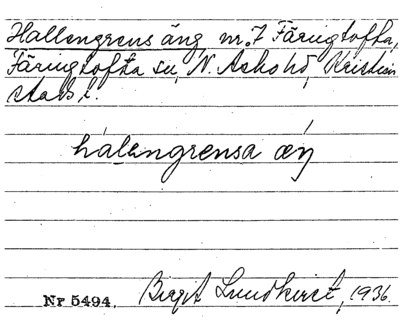 Hallengrens äng, nr. 7 Färingtofta,
Färingtofta sn, N. Åsbo hd, Kristian
stads l.
hálengrensa æŋ
Nr 5494. Birgit Lundkvist, 1936.